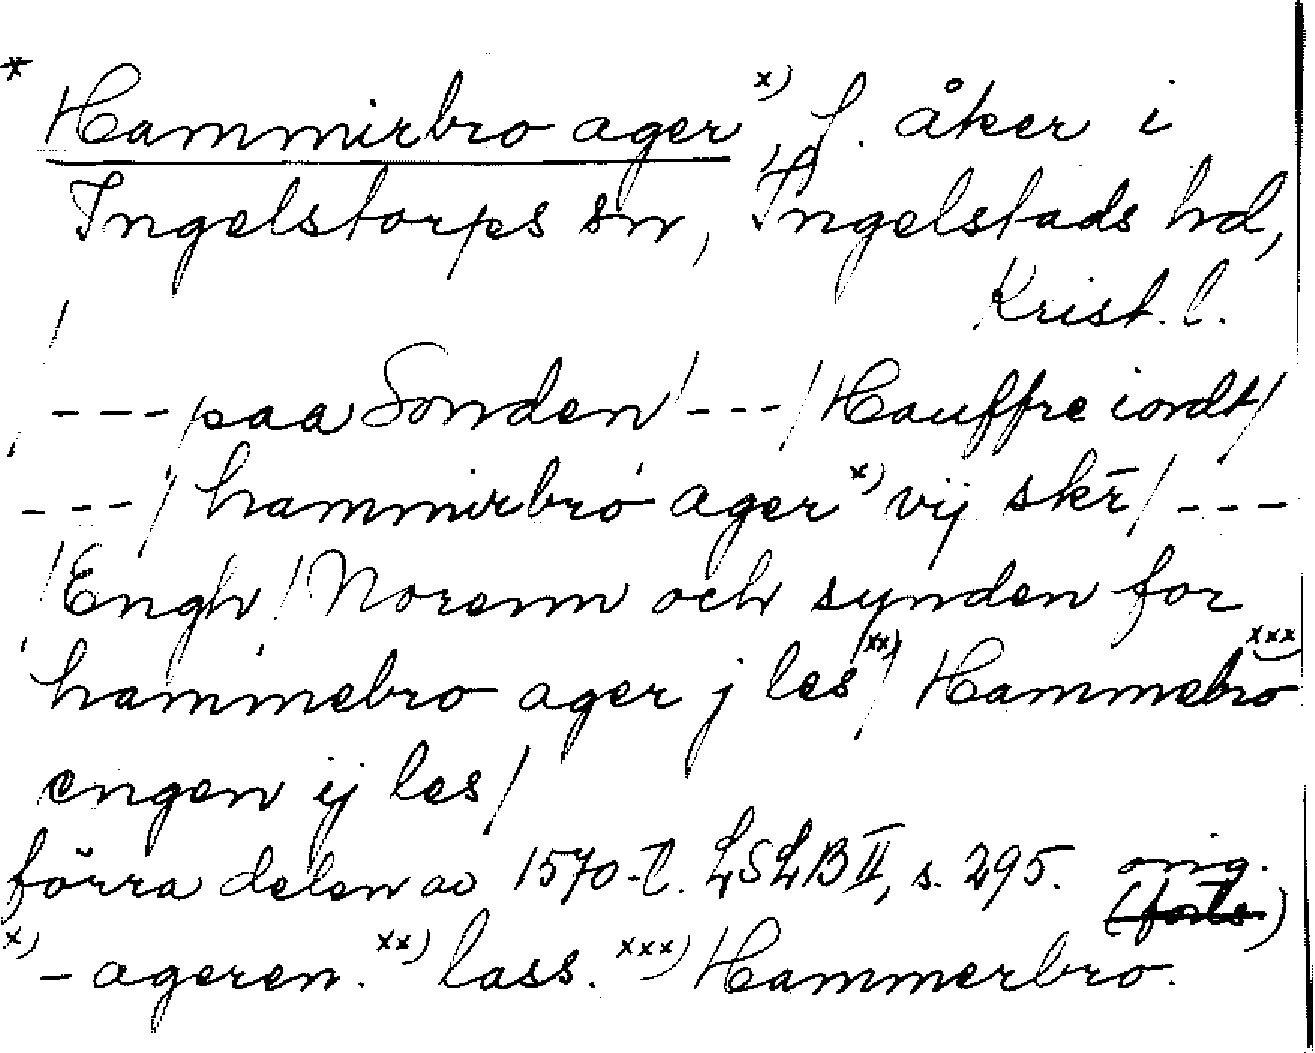 * Hammirbro ager x), f. åker i
Ingelstorps sn, Ingelstads hd,
Krist. l.
--- / paa Sonden / --- / Hauffre iordt /
--- / hammirbro ager x) vij skr̄ / ---
/ Engh / Norenn och synden for
hammebro ager j les xx) / Hammebro xxx)
engen ij les /
förra delen av 1570-t. LSLB II, s. 295. orig.
x) - ageren. xx) lass. xxx) Hammerbro.